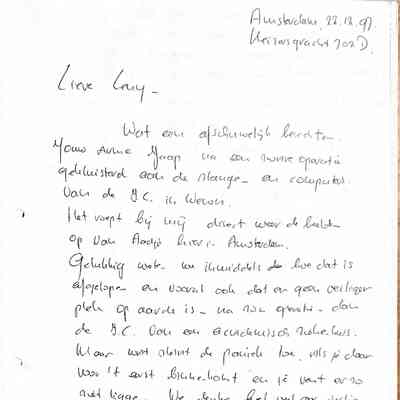 Amsterdam, 22.12.97.
Keizersgracht 702 D.
Lieve Cony -
Wat een afschuwelijk bericht.
Jouw arme Jaap na een zware operatie
gekluisterd aan de slangen en computers
van de I.C. in Leuven.
Het roept bij mij direct weer de beelden
op van Aadje hier in Amsterdam.
Gelukkig weten we inmiddels hoe dat is
afgelopen en vooral ook dat er geen veiliger
plek op aarde is - na zo'n operatie - dan
de I.C. van een academisch ziekenhuis.
Maar wat slaat de paniek toe, als je daar
voor 't eerst binnenkomt en je vent er zo
ziet liggen. We